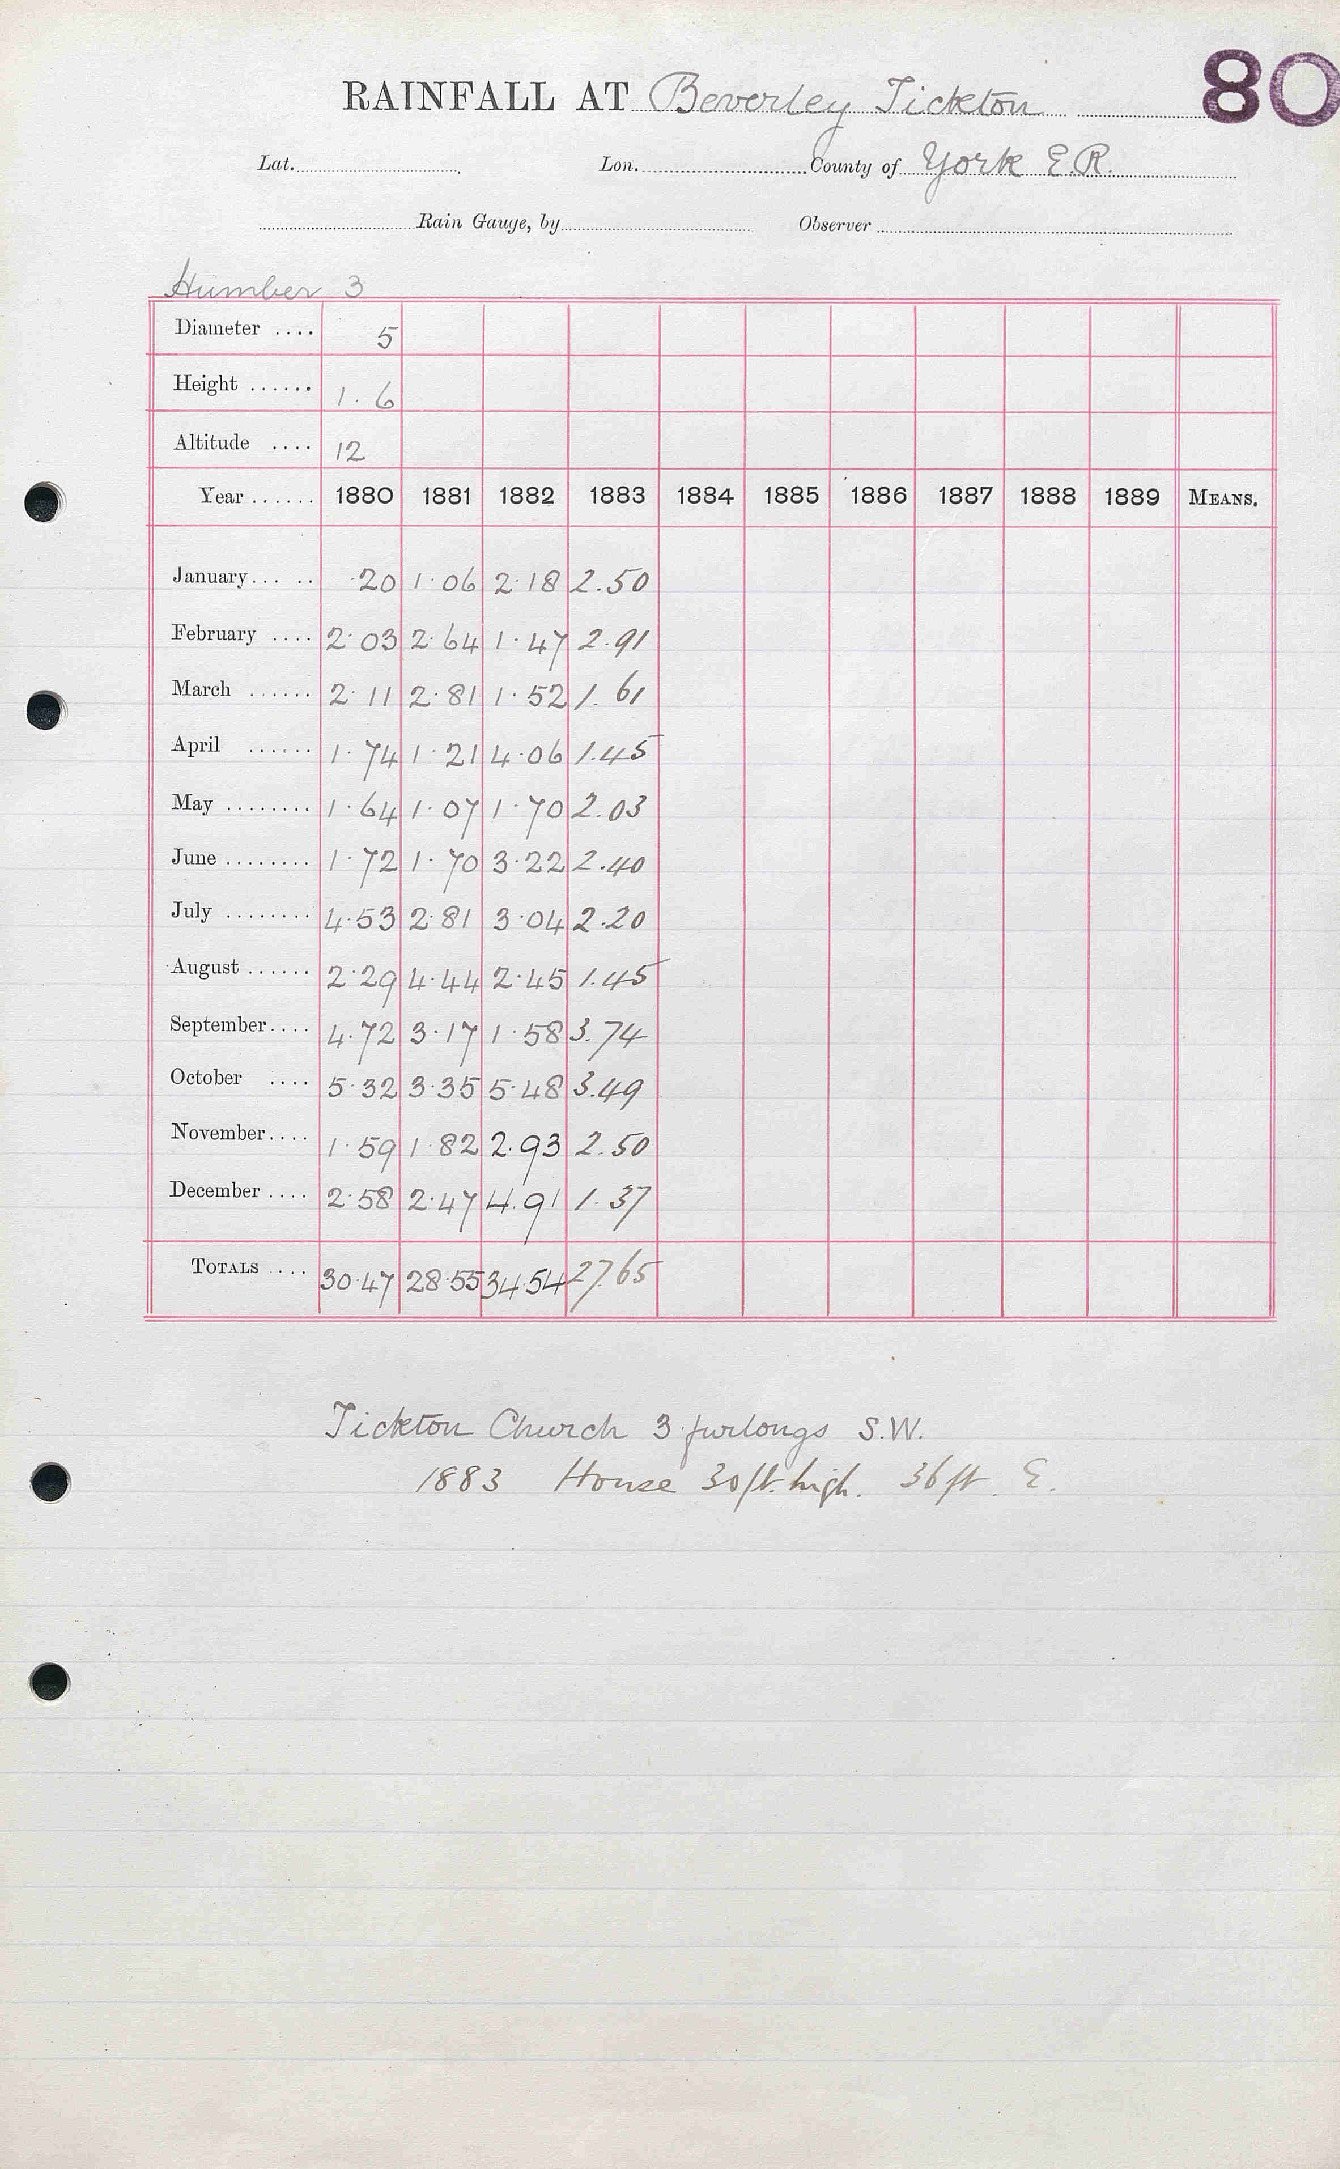 80
RAINFALL AT Beverley Tickton
Lat. Lon. County of York E.R.
Rain Gauge, by Observer
Humber 3
Diameter .... 5
Height ...... 1.6
Altitude .... 12
Year ...... 1880 1881 1882 1883 1884 1885 1886 1887 1888 1889 MEANS.
January... .. .20 1.06 2.18 2.50
February .... 2.03 2.64 1.47 2.91
March ...... 2.11 2.81 1.52 1.61
April ...... 1.74 1.21 4.06 1.45
May ........ 1.64 1.07 1.70 2.03
June ........ 1.72 1.70 3.22 2.40
July ........ 4.53 2.81 3.04 2.20
August ...... 2.29 4.44 2.45 1.45
September.... 4.72 3.17 1.58 3.74
October .... 5.32 3.35 5.48 3.49
November.... 1.59 1.82 2.93 2.50
December .... 2.58 2.47 4.91 1.37
TOTALS .... 30.47 28.55 34.54 27.65
Tickton Church 3 furlongs S.W.
1883 House 30ft. high. 36ft. E.